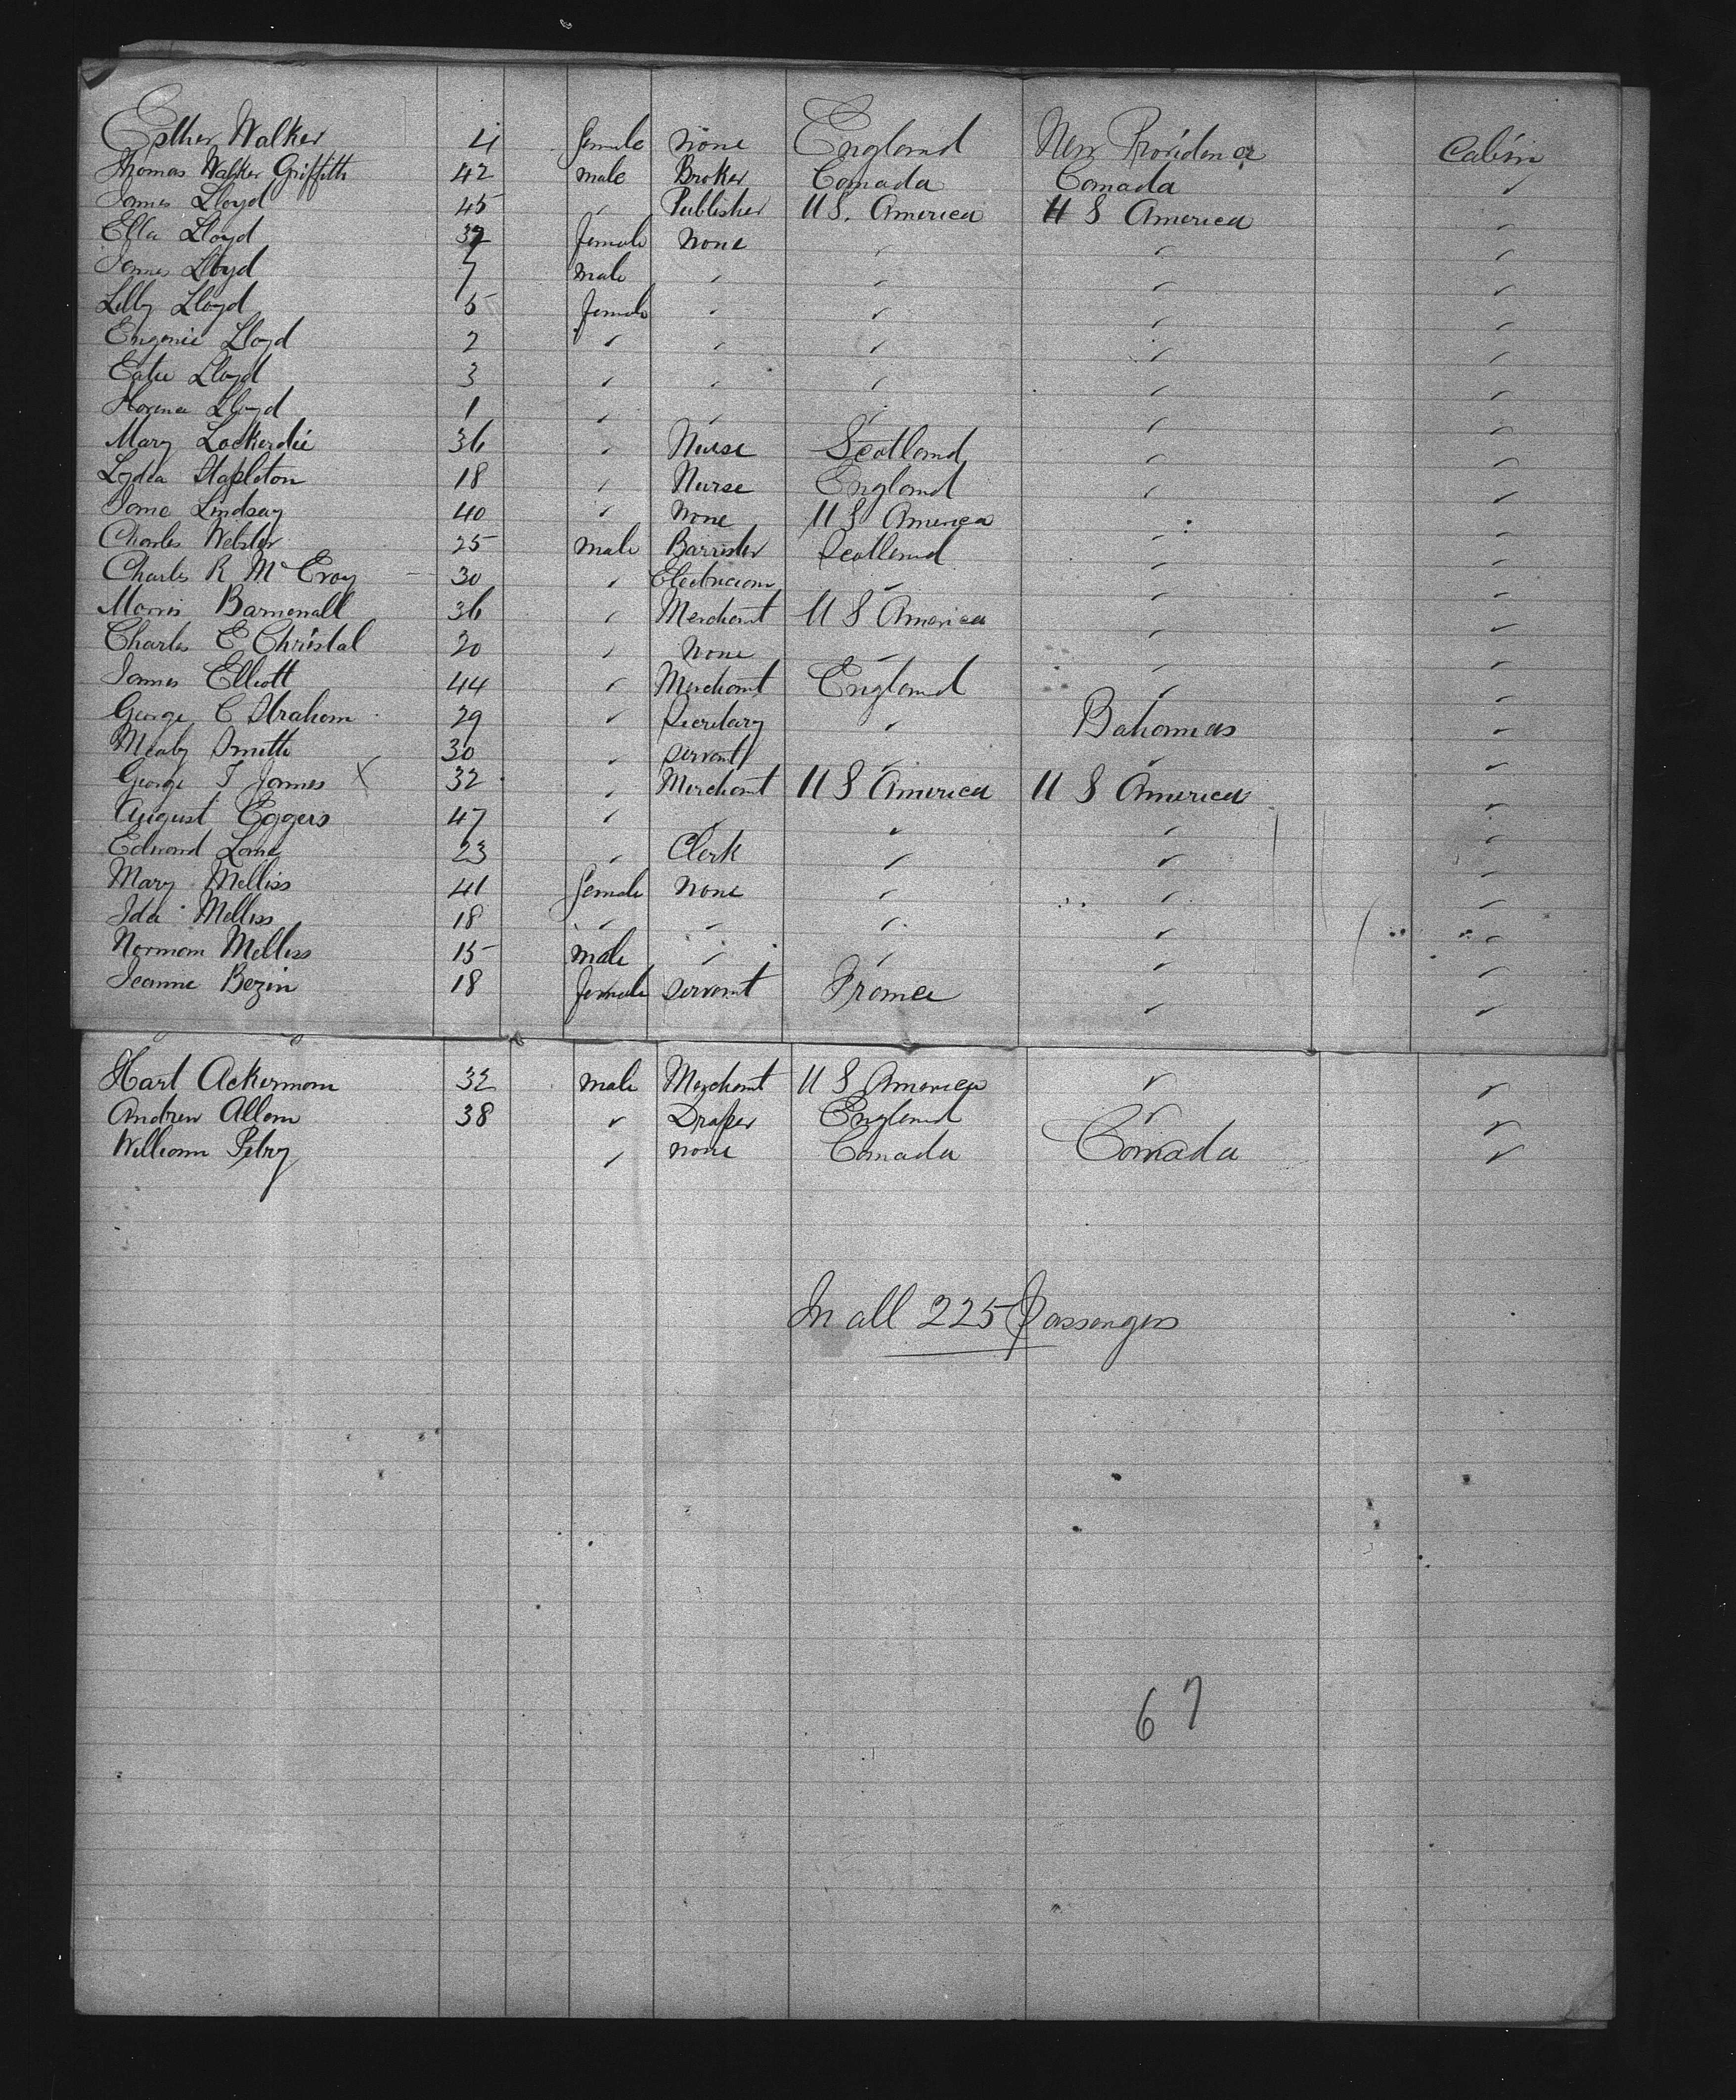 Esther Walker 4 female none England New Providence Cabin
Thomas Walker Griffith 42 male Broker Canada Canada ✓
James Lloyd 45 ✓ Publisher U S. America U S America ✓
Ella Lloyd 32 female none ✓ ✓ ✓
James Lloyd 7 male ✓ ✓ ✓ ✓
Lilly Lloyd 5 female ✓ ✓ ✓ ✓
Eugenie Lloyd 2 ✓ ✓ ✓ ✓ ✓
Eatie Lloyd 3 ✓ ✓ ✓ ✓ ✓
Florence Lloyd 1 ✓ ✓ ✓ ✓ ✓
Mary Lockerdie 36 ✓ Nurse Scotland ✓ ✓
Lydia Stapleton 18 ✓ Nurse England ✓ ✓
Jane Lindsay 40 ✓ None U S America ✓ ✓
Charles Webster 25 male Barrister Scotland ✓ ✓
Charles R McEvoy 30 ✓ Electrician ✓ ✓ ✓
Morris 36 ✓ Merchant U S America ✓ ✓
Charles E Christal 20 ✓ None ✓ ✓ ✓
James Elliott 44 ✓ Merchant England ✓ ✓
George C Strahan 29 ✓ Secretary ✓ Bahamas ✓
Smith 30 ✓ servant ✓ ✓ ✓
George T James X 32 ✓ Merchant U S America U S America ✓
August Eggers 47 ✓ ✓ ✓ ✓ ✓
Edward Lane 23 ✓ Clerk ✓ ✓ ✓
Mary Melliss 41 female None ✓ ✓ ✓
Ida Melliss 18 ✓ ✓ ✓ ✓ ✓
Norman Melliss 15 male ✓ ✓ ✓ ✓
Jeanne Bezin 18 female servant France ✓ ✓
Hart Ackerman 32 male Merchant U S America ✓ ✓
Andrew Allan 38 ✓ Draper England ✓ ✓
William Petry ✓ none Canada Canada ✓
In all 225 Passengers
67